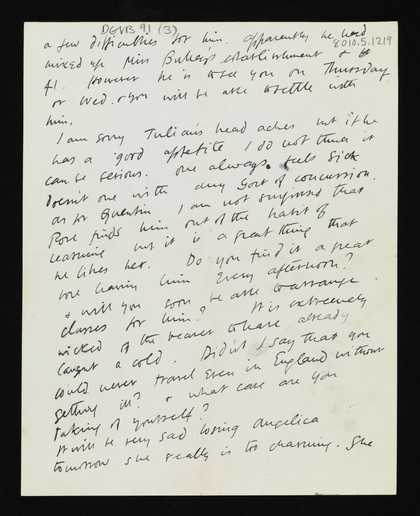 DGVB 9.1 (3)
8010.5.1219
a few difficulties for him. Apparently he had
mixed up Miss establishment &
41. However he is to see you on Thursday
or Wed. & you will be able to settle with
him.
I am sorry Julian's head aches but if he
has a good appetite I do not think it
can be serious. One always feels sick
doesn't one with any sort of concussion.
As for Quentin I am not surprised that
Rose finds him out of the habit of
learning but it is a great thing that
he likes her. Do you find it a great
bore having him every afternoon?
& will you soon be able to arrange
classes for him? It is extremely
wicked of the bearer to have already
caught a cold. Didn't I say that you
could never travel even in England without
getting ill? & what care are you
taking of yourself?
It will be very sad losing Angelica
tomorrow she really is too charming. She